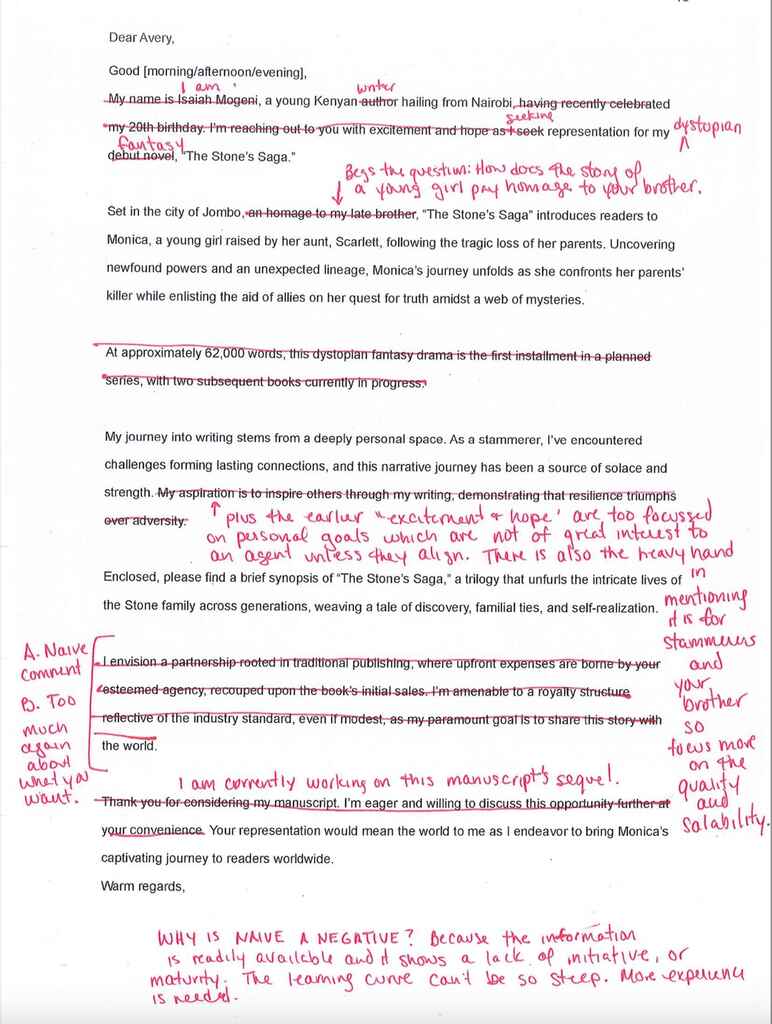 Dear Avery,
Good [morning/afternoon/evening],
I am
writer
My name is Isaiah Mogeni, a young Kenyan author hailing from Nairobi, having recently celebrated
seeking
my 20th birthday. I'm reaching out to you with excitement and hope as I seek representation for my dystopian
fantasy
debut novel, "The Stone's Saga."
Begs the question: How does the story of
a young girl pay homage to your brother.
Set in the city of Jombo, an homage to my late brother, "The Stone's Saga" introduces readers to
Monica, a young girl raised by her aunt, Scarlett, following the tragic loss of her parents. Uncovering
newfound powers and an unexpected lineage, Monica's journey unfolds as she confronts her parents'
killer while enlisting the aid of allies on her quest for truth amidst a web of mysteries.
At approximately 62,000 words, this dystopian fantasy drama is the first installment in a planned
series, with two subsequent books currently in progress.
My journey into writing stems from a deeply personal space. As a stammerer, I've encountered
challenges forming lasting connections, and this narrative journey has been a source of solace and
strength. My aspiration is to inspire others through my writing, demonstrating that resilience triumphs
over adversity.
plus the earlier "excitement & hope' are too focussed
on personal goals which are not of great interest to
an agent unless they align. There is also the heavy hand
in
mentioning
it is for
stammerers
and
your
brother
so
focus more
on the
quality
and
salability.
Enclosed, please find a brief synopsis of "The Stone's Saga," a trilogy that unfurls the intricate lives of
the Stone family across generations, weaving a tale of discovery, familial ties, and self-realization.
A. Naive
comment
B. Too
much
again
about
what you
want.
I envision a partnership rooted in traditional publishing, where upfront expenses are borne by your
esteemed agency, recouped upon the book's initial sales. I'm amenable to a royalty structure
reflective of the industry standard, even if modest, as my paramount goal is to share this story with
the world.
I am currently working on this manuscript's sequel.
Thank you for considering my manuscript. I'm eager and willing to discuss this opportunity further at
your convenience. Your representation would mean the world to me as I endeavor to bring Monica's
captivating journey to readers worldwide.
Warm regards,
WHY IS NAIVE A NEGATIVE? Because the information
is readily available and it shows a lack of initiative, or
maturity. The learning curve can't be so steep. More experience
is needed.